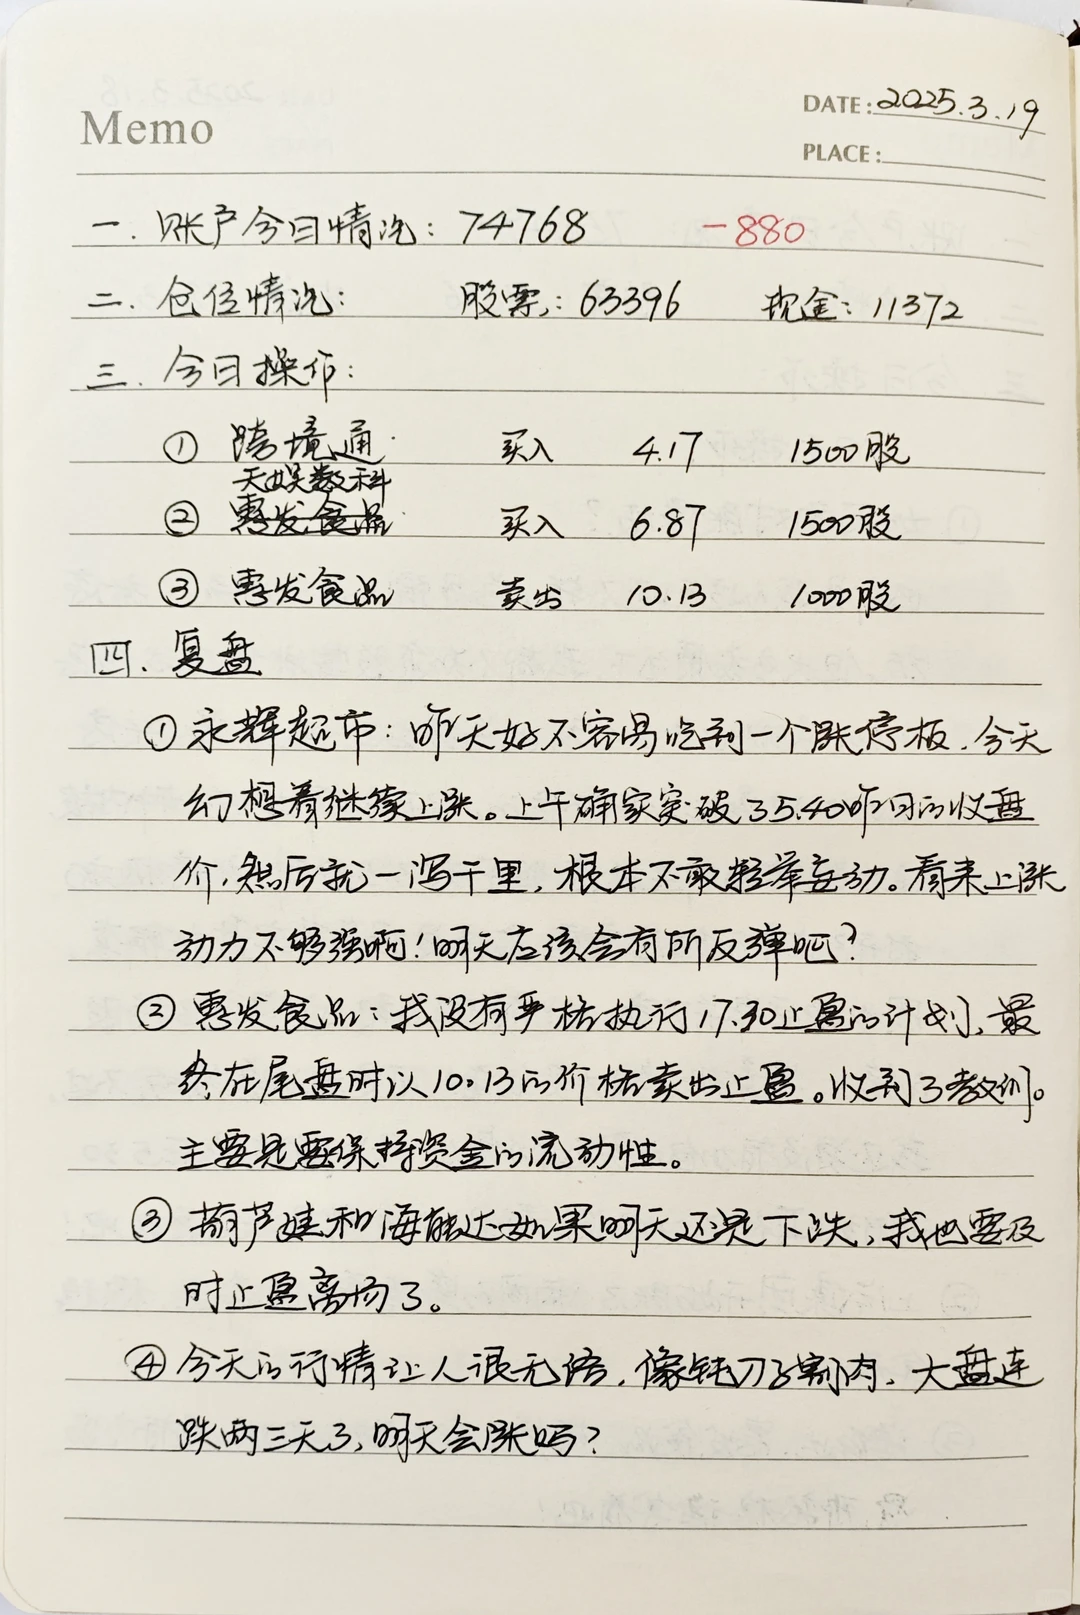 Memo
DATE: 2025.3.19
PLACE:
一. 账户今日情况: 74768 -880
二. 仓位情况: 股票: 63396 现金: 11372
三. 今日操作:
① 跨境通 买入 4.17 1500股
天娱数科
② 惠发食品 买入 6.87 1500股
③ 惠发食品 卖出 10.13 1000股
四. 复盘
① 永辉超市: 昨天好不容易吃到一个涨停板, 今天
幻想着继续上涨。上午确实突破了5.40昨日的收盘
价, 然后就一泻千里, 根本不敢轻举妄动。看来上涨
动力不够强啊! 明天应该会有所反弹吧?
② 惠发食品: 我没有严格执行17.30止盈的计划, 最
终在尾盘时以10.13的价格卖出止盈。收到了教训。
主要是要保持资金的流动性。
③ 葫芦娃和海能达如果明天还是下跌, 我也要及
时止盈离场了。
④ 今天的行情让人很无语, 像钝刀子割肉, 大盘连
跌两三天了, 明天会涨吗?